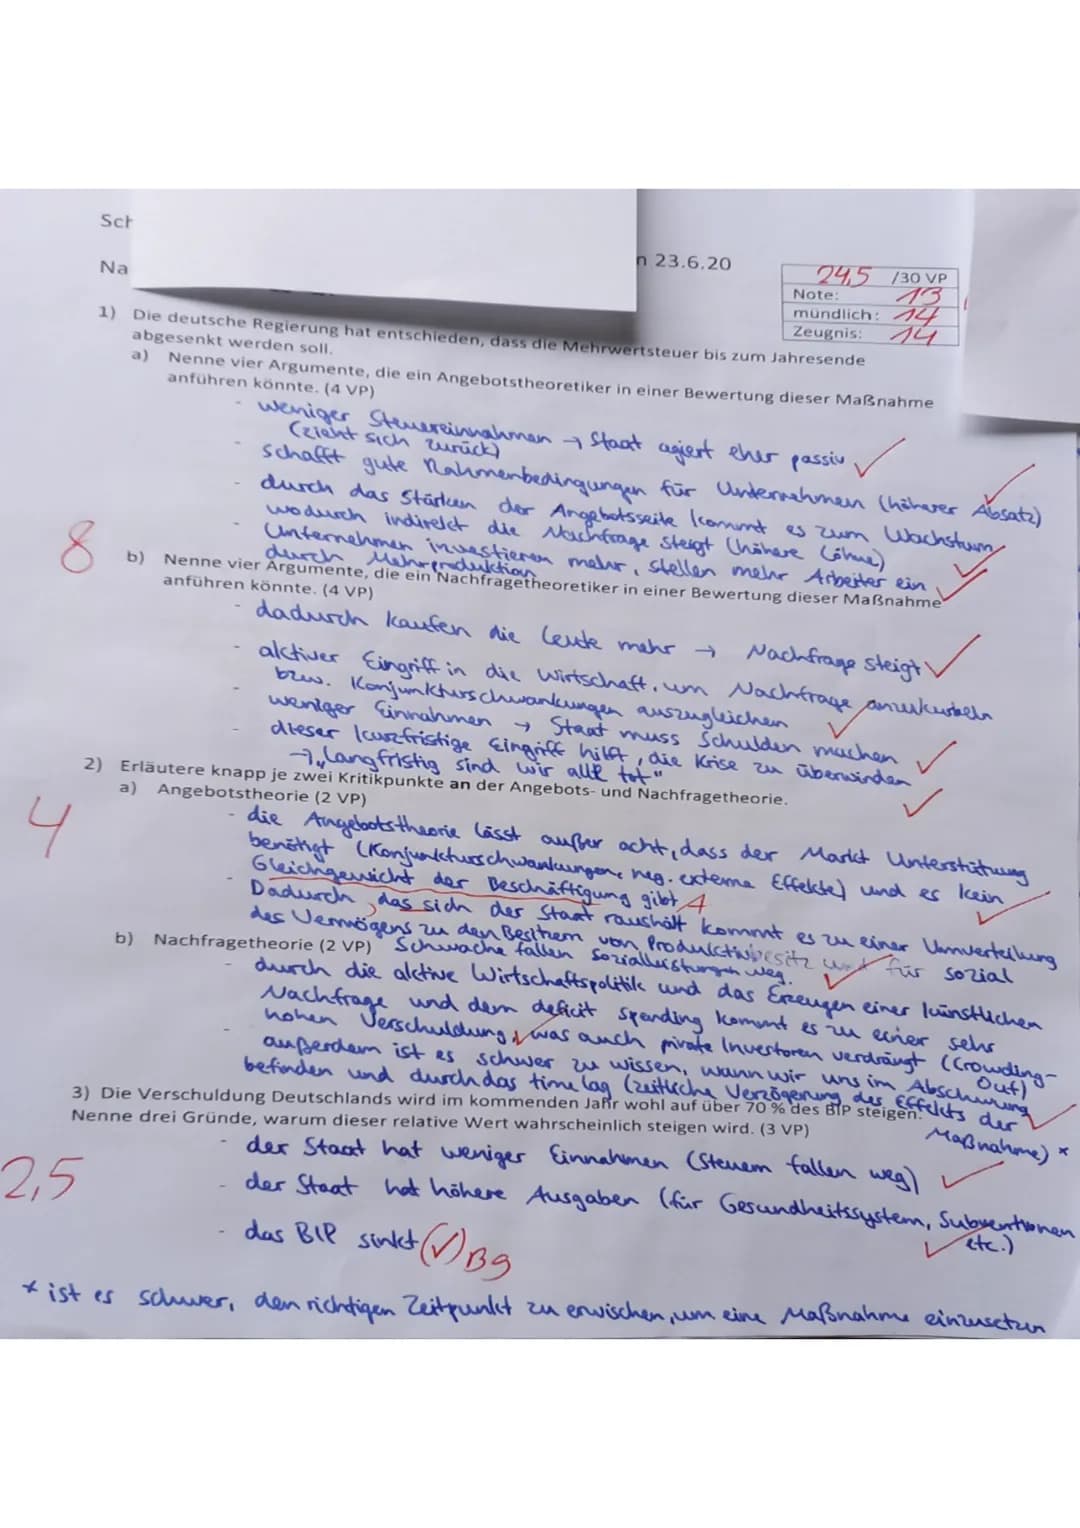 Sch
n 23.6.20
Na
24,5 /30 VP
Note: 13
mündlich: 14
Zeugnis: 14
1) Die deutsche Regierung hat entschieden, dass die Mehrwertsteuer bis zum Jahresende
abgesenkt werden soll.
a) Nenne vier Argumente, die ein Angebotstheoretiker in einer Bewertung dieser Maßnahme
anführen könnte. (4 VP)
- weniger Steuereinnahmen → Staat agiert eher passiv ✓
(zieht sich zurück)
- schafft gute Rahmenbedingungen für Unternehmen (höherer Absatz) ✓
- durch das Stärken der Angebotsseite kommt es zum Wachstum,
wodurch indirekt die Nachfrage steigt (höhere Löhne) ✓
- Unternehmen investieren mehr, stellen mehr Arbeiter ein ✓
durch Mehrproduktion
8
b) Nenne vier Argumente, die ein Nachfragetheoretiker in einer Bewertung dieser Maßnahme
anführen könnte. (4 VP)
- dadurch kaufen die Leute mehr → Nachfrage steigt ✓
- aktiver Eingriff in die Wirtschaft, um Nachfrage anzukurbeln
bzw. Konjunkturschwankungen auszugleichen ✓
- weniger Einnahmen → Staat muss Schulden machen ✓
- dieser kurzfristige Eingriff hilft, die Krise zu überwinden
→ „Langfristig sind wir alle tot" ✓
2) Erläutere knapp je zwei Kritikpunkte an der Angebots- und Nachfragetheorie.
a) Angebotstheorie (2 VP)
4
- die Angebotstheorie lässt außer acht, dass der Markt Unterstützung
benötigt (Konjunkturschwankungen, neg. externe Effekte) und es kein
Gleichgewicht der Beschäftigung gibt A ✓
- Dadurch, das sich der Staat raushält kommt es zu einer Umverteilung
des Vermögens zu den Besitzern von Produktivbesitz und für sozial
Schwache fallen Sozialleistungen weg. ✓
b) Nachfragetheorie (2 VP)
- durch die aktive Wirtschaftspolitik und das Erzeugen einer künstlichen
Nachfrage und dem deficit spending kommt es zu einer sehr
hohen Verschuldung, ✓ was auch private Investoren verdrängt (Crowding-
Out)
- außerdem ist es schwer zu wissen, wann wir uns im Abschwung
befinden und durch das time lag (zeitliche Verzögerung des Effekts der ✓
Maßnahme) *
3) Die Verschuldung Deutschlands wird im kommenden Jahr wohl auf über 70 % des BIP steigen.
Nenne drei Gründe, warum dieser relative Wert wahrscheinlich steigen wird. (3 VP)
2,5
- der Staat hat weniger Einnahmen (Steuern fallen weg) ✓
- der Staat hat höhere Ausgaben (für Gesundheitssystem, Subventionen
etc.) ✓
- das BIP sinkt (✓) Bg
* ist es schwer, den richtigen Zeitpunkt zu erwischen, um eine Maßnahme einzusetzen